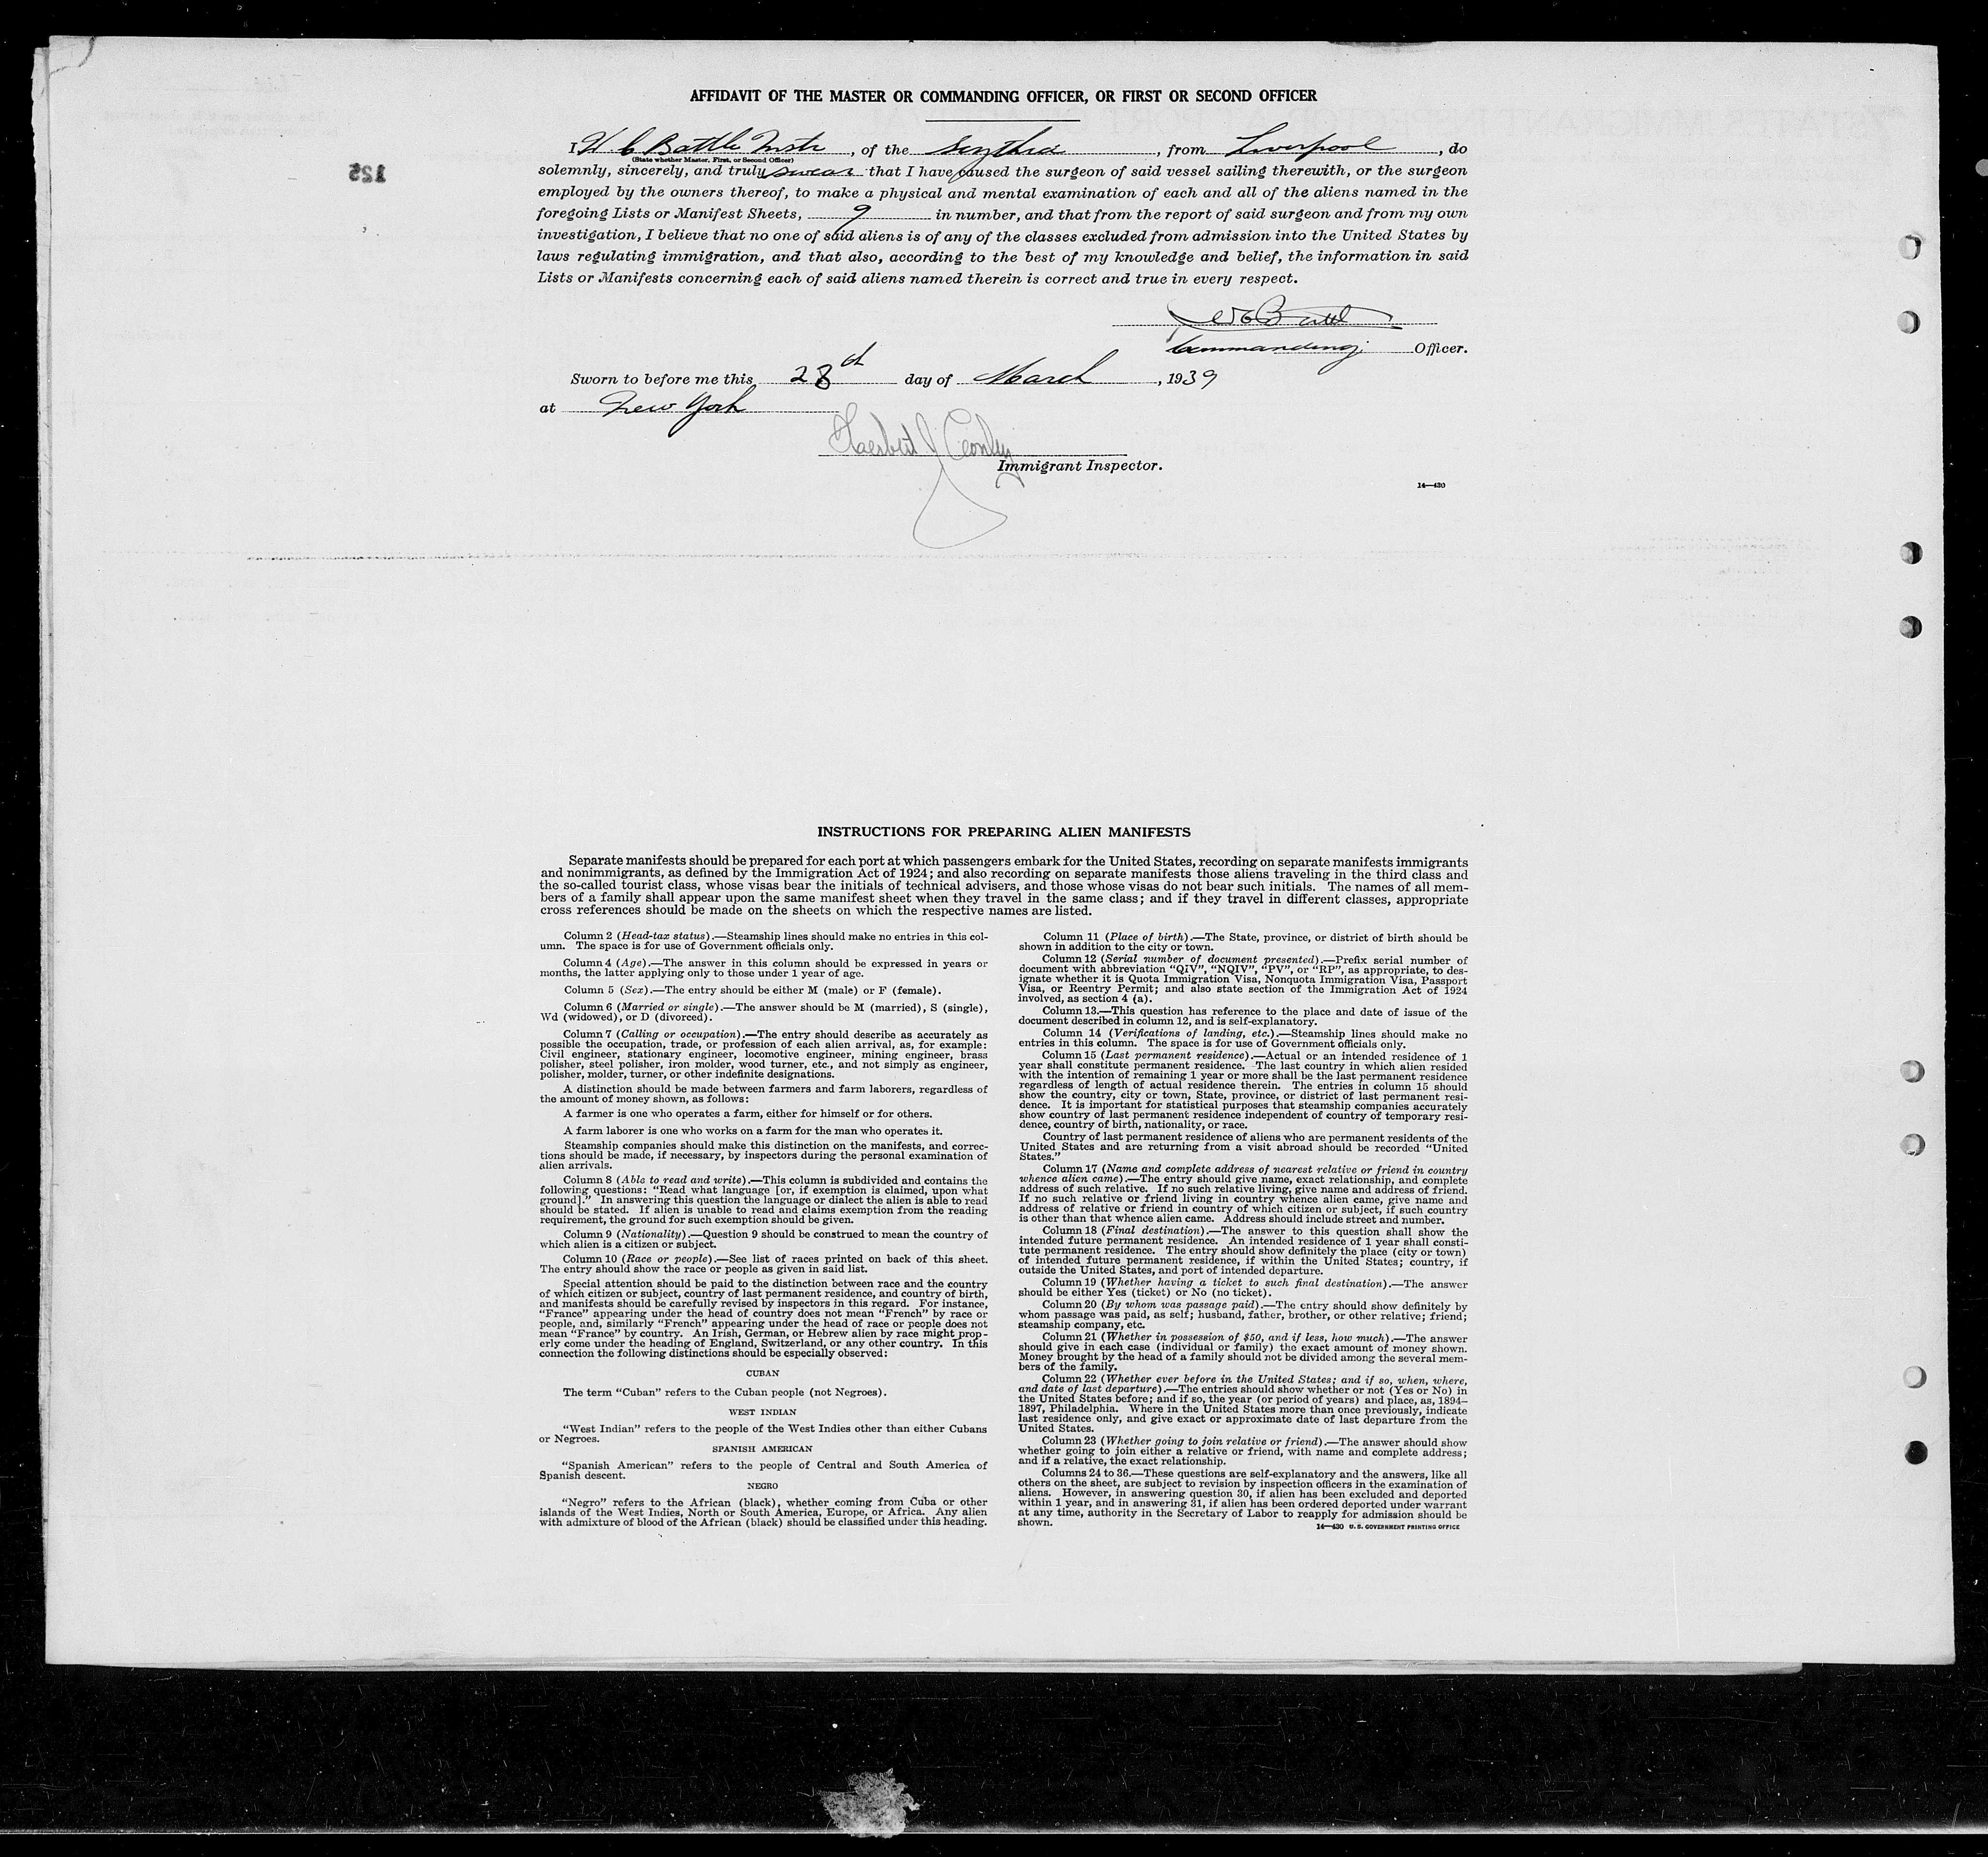 AFFIDAVIT OF THE MASTER OR COMMANDING OFFICER, OR FIRST OR SECOND OFFICER
I W. C. Battle Mstr, of the Scythia, from Liverpool, do
(State whether Master, First, or Second Officer)
solemnly, sincerely, and truly swear that I have caused the surgeon of said vessel sailing therewith, or the surgeon
employed by the owners thereof, to make a physical and mental examination of each and all of the aliens named in the
foregoing Lists or Manifest Sheets, 9 in number, and that from the report of said surgeon and from my own
investigation, I believe that no one of said aliens is of any of the classes excluded from admission into the United States by
laws regulating immigration, and that also, according to the best of my knowledge and belief, the information in said
Lists or Manifests concerning each of said aliens named therein is correct and true in every respect.
Commanding Officer.
Sworn to before me this 28th day of March, 1939
at New York
Herbert J Conley
Immigrant Inspector.
14—430
125
INSTRUCTIONS FOR PREPARING ALIEN MANIFESTS
Separate manifests should be prepared for each port at which passengers embark for the United States, recording on separate manifests immigrants
and nonimmigrants, as defined by the Immigration Act of 1924; and also recording on separate manifests those aliens traveling in the third class and
the so-called tourist class, whose visas bear the initials of technical advisers, and those whose visas do not bear such initials. The names of all mem-
bers of a family shall appear upon the same manifest sheet when they travel in the same class; and if they travel in different classes, appropriate
cross references should be made on the sheets on which the respective names are listed.
Column 2 (Head-tax status).—Steamship lines should make no entries in this col-
umn. The space is for use of Government officials only.
Column 4 (Age).—The answer in this column should be expressed in years or
months, the latter applying only to those under 1 year of age.
Column 5 (Sex).—The entry should be either M (male) or F (female).
Column 6 (Married or single).—The answer should be M (married), S (single),
Wd (widowed), or D (divorced).
Column 7 (Calling or occupation).—The entry should describe as accurately as
possible the occupation, trade, or profession of each alien arrival, as, for example:
Civil engineer, stationary engineer, locomotive engineer, mining engineer, brass
polisher, steel polisher, iron molder, wood turner, etc., and not simply as engineer,
polisher, molder, turner, or other indefinite designations.
A distinction should be made between farmers and farm laborers, regardless of
the amount of money shown, as follows:
A farmer is one who operates a farm, either for himself or for others.
A farm laborer is one who works on a farm for the man who operates it.
Steamship companies should make this distinction on the manifests, and correc-
tions should be made, if necessary, by inspectors during the personal examination of
alien arrivals.
Column 8 (Able to read and write).—This column is subdivided and contains the
following questions: "Read what language [or, if exemption is claimed, upon what
ground]." In answering this question the language or dialect the alien is able to read
should be stated. If alien is unable to read and claims exemption from the reading
requirement, the ground for such exemption should be given.
Column 9 (Nationality).—Question 9 should be construed to mean the country of
which alien is a citizen or subject.
Column 10 (Race or people).—See list of races printed on back of this sheet.
The entry should show the race or people as given in said list.
Special attention should be paid to the distinction between race and the country
of which citizen or subject, country of last permanent residence, and country of birth,
and manifests should be carefully revised by inspectors in this regard. For instance,
"France" appearing under the head of country does not mean "French" by race or
people, and, similarly "French" appearing under the head of race or people does not
mean "France" by country. An Irish, German, or Hebrew alien by race might prop-
erly come under the heading of England, Switzerland, or any other country. In this
connection the following distinctions should be especially observed:
CUBAN
The term "Cuban" refers to the Cuban people (not Negroes).
WEST INDIAN
"West Indian" refers to the people of the West Indies other than either Cubans
or Negroes.
SPANISH AMERICAN
"Spanish American" refers to the people of Central and South America of
Spanish descent.
NEGRO
"Negro" refers to the African (black), whether coming from Cuba or other
islands of the West Indies, North or South America, Europe, or Africa. Any alien
with admixture of blood of the African (black) should be classified under this heading.
Column 11 (Place of birth).—The State, province, or district of birth should be
shown in addition to the city or town.
Column 12 (Serial number of document presented).—Prefix serial number of
document with abbreviation "QIV", "NQIV", "PV", or "RP", as appropriate, to des-
ignate whether it is Quota Immigration Visa, Nonquota Immigration Visa, Passport
Visa, or Reentry Permit; and also state section of the Immigration Act of 1924
involved, as section 4 (a).
Column 13.—This question has reference to the place and date of issue of the
document described in column 12, and is self-explanatory.
Column 14 (Verifications of landing, etc.).—Steamship lines should make no
entries in this column. The space is for use of Government officials only.
Column 15 (Last permanent residence).—Actual or an intended residence of 1
year shall constitute permanent residence. The last country in which alien resided
with the intention of remaining 1 year or more shall be the last permanent residence
regardless of length of actual residence therein. The entries in column 15 should
show the country, city or town, State, province, or district of last permanent resi-
dence. It is important for statistical purposes that steamship companies accurately
show country of last permanent residence independent of country of temporary resi-
dence, country of birth, nationality, or race.
Country of last permanent residence of aliens who are permanent residents of the
United States and are returning from a visit abroad should be recorded "United
States."
Column 17 (Name and complete address of nearest relative or friend in country
whence alien came).—The entry should give name, exact relationship, and complete
address of such relative. If no such relative living, give name and address of friend.
If no such relative or friend living in country whence alien came, give name and
address of relative or friend in country of which citizen or subject, if such country
is other than that whence alien came. Address should include street and number.
Column 18 (Final destination).—The answer to this question shall show the
intended future permanent residence. An intended residence of 1 year shall consti-
tute permanent residence. The entry should show definitely the place (city or town)
of intended future permanent residence, if within the United States; country, if
outside the United States, and port of intended departure.
Column 19 (Whether having a ticket to such final destination).—The answer
should be either Yes (ticket) or No (no ticket).
Column 20 (By whom was passage paid).—The entry should show definitely by
whom passage was paid, as self; husband, father, brother, or other relative; friend;
steamship company, etc.
Column 21 (Whether in possession of $50, and if less, how much).—The answer
should give in each case (individual or family) the exact amount of money shown.
Money brought by the head of a family should not be divided among the several mem-
bers of the family.
Column 22 (Whether ever before in the United States; and if so, when, where,
and date of last departure).—The entries should show whether or not (Yes or No) in
the United States before; and if so, the year (or period of years) and place, as, 1894–
1897, Philadelphia. Where in the United States more than once previously, indicate
last residence only, and give exact or approximate date of last departure from the
United States.
Column 23 (Whether going to join relative or friend).—The answer should show
whether going to join either a relative or friend, with name and complete address;
and if a relative, the exact relationship.
Columns 24 to 36.—These questions are self-explanatory and the answers, like all
others on the sheet, are subject to revision by inspection officers in the examination of
aliens. However, in answering question 30, if alien has been excluded and deported
within 1 year, and in answering 31, if alien has been ordered deported under warrant
at any time, authority in the Secretary of Labor to reapply for admission should be
shown.
14—430 U. S. GOVERNMENT PRINTING OFFICE